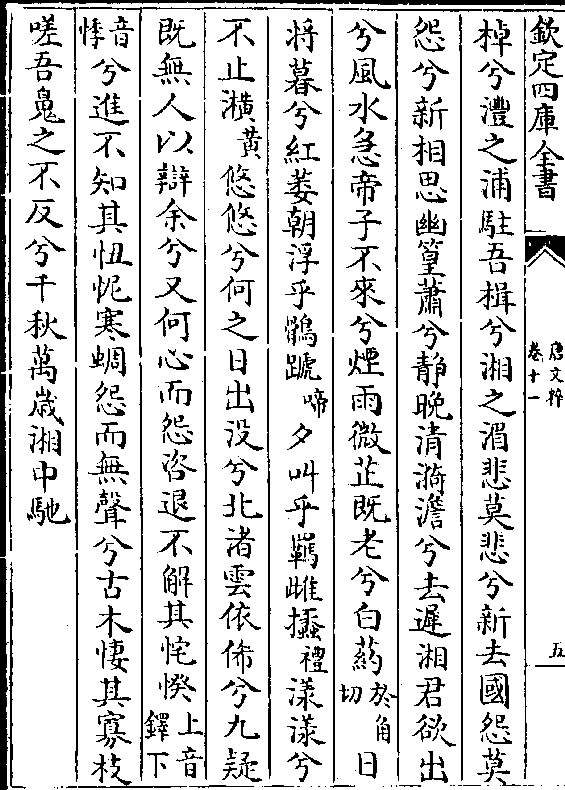 欽定四庫全書
唐文粹
卷十一
五
棹兮澧之浦駐吾楫兮湘之湄悲莫悲兮新去國怨莫
怨兮新相思幽篁蕭兮靜晚清漪澹兮去遲湘君欲出
兮風水急帝子不來兮煙雨微芷既老兮白葯於角切日
將暮兮紅蔞朝浮乎鶻蹏啼夕叫乎羈雌㩜禮漾漾兮
不止潢黃悠悠兮何之日出没兮北渚雲依俙兮九疑
既無人以辯余兮又何心而怨咨退不解其恾㥍上音鐸下
音悸兮進不知其忸怩寒蜩怨而無聲兮古木悽其寡枝
嗟吾䰟之不反兮千秋萬歲湘中馳